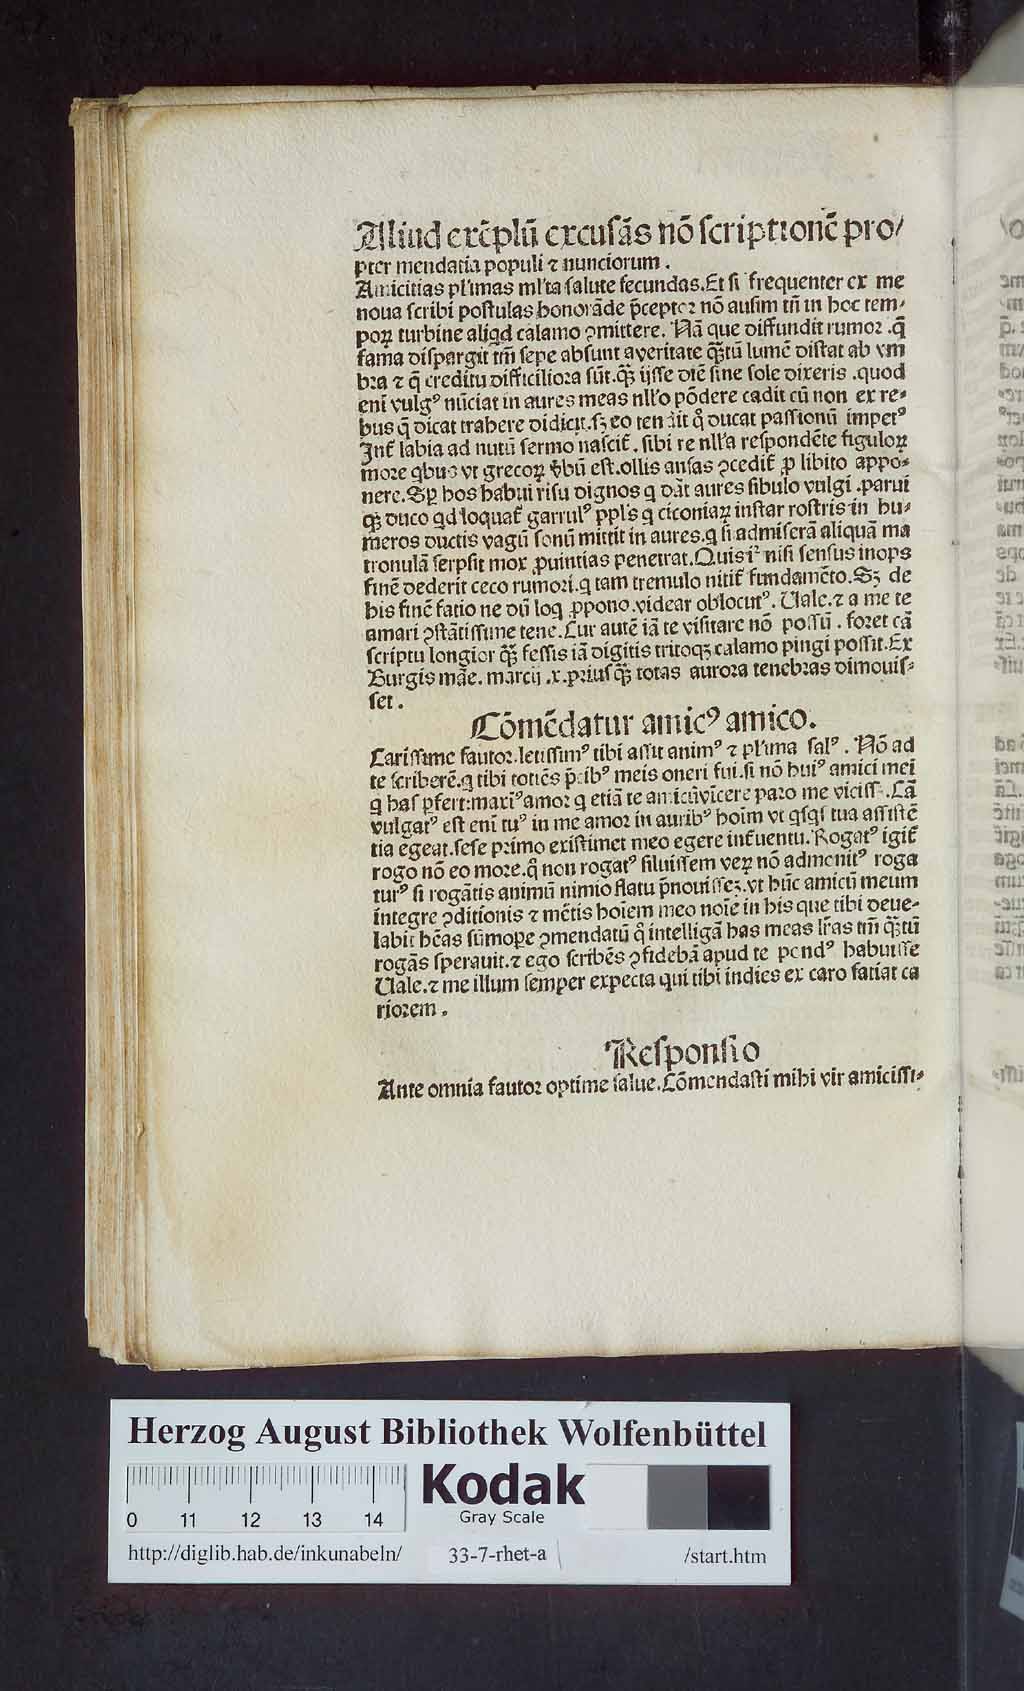 Aliud exẽplũ excusãs nõ scriptionẽ pro/
pter mendatia populi ⁊ nunciorum.
Amicitias pl'imas ml'ta salute fecundas. Et si frequenter ex me
noua scribi postulas honorãde p̄ceptor nõ ausim tñ in hoc tem-
poꝝ turbine aliqd calamo ꝯmittere. Nã que diffundit rumor .q̃
fama dispargit tm̃ sepe absunt a veritate qꝫtũ lumẽ distat ab vm
bra ⁊ q̃ creditu difficiliora sũt. qꝫ ijsse diẽ sine sole dixeris .quod
enĩ vulgꝰ nũciat in aures meas nll'o põdere cadit cũ non ex re-
bus q̃ dicat trahere didicit. sꝫ eo tendit q̊ ducat passionũ impetꝰ
Int̃ labia ad nutũ sermo nascit̃. sibi re nll'a respondẽte figuloꝝ
more qbus vt grecoꝝ v̓bũ est. ollis ansas ꝯcedit̃ ꝓ libito appo-
nere. Sꝑ hos habui risu dignos q dãt aures sibulo vulgi .parui
qꝫ duco qd loquat̃ garrulꝰ ppl's q ciconiaꝝ instar rostris in hu-
meros ductis vagũ sonũ mittit in aures. q si admiserã aliquã ma
tronulã serpsit mox ꝓuintias penetrat. Quis nisi sensus inops
finẽ dederit ceco rumori. q tam tremulo nitit̃ fundamẽto. Sꝫ de
his finẽ fatio ne dũ loq ꝓpono. videar oblocutꝰ. Uale. ⁊ a me te
amari ꝯstãtissime tene. Cur autẽ iã te visitare nõ possũ. foret cã
scriptu longior qꝫ fessis iã digitis tritoqꝫ calamo pingi possit. Ex
Burgis mãe. marcij .x. priusqꝫ totas aurora tenebras dimouis-
set.
Cõmẽdatur amicꝰ amico.
Carissime fautor. letissimꝰ tibi assit animꝰ ⁊ pl'ima salꝰ. Nõ ad
te scriberẽ. q tibi totiẽs p̄cibꝰ meis oneri fui. si nõ huiꝰ amici mei
q has ꝑfert: maxĩꝰ amor q etiã te amicũ vĩcere paro me viciss. Cã
vulgatꝰ est enĩ tuꝰ in me amor in auribꝰ hoĩm vt qsqs tua assistẽ
tia egeat. sese primo existimet meo egere int̃uentu. Rogatꝰ igit̃
rogo nõ eo more. q̊ non rogatꝰ siluissem veꝝ nõ admonitꝰ roga
turꝰ si rogãtis animũ nimio flatu p̄nouissez. vt hũc amicũ meum
integre ꝯditionis ⁊ mẽtis hoĩem meo noĩe in his que tibi deue-
labit hẽas sũmoꝑe ꝯmendatũ q̊ intelligã has meas lr̃as tm̃ qꝫtũ
rogãs sperauit. ⁊ ego scribẽs ꝯfidebã apud te pondꝰ habuisse
Uale. ⁊ me illum semper expecta qui tibi indies ex caro fatiat ca
riorem.
Responsio
Ante omnia fautor optime salue. Cõmendasti mihi vir amicissi-
Herzog August Bibliothek Wolfenbüttel
Kodak
Gray Scale
0 11 12 13 14
http://diglib.hab.de/inkunabeln/ 33-7-rhet-a /start.htm